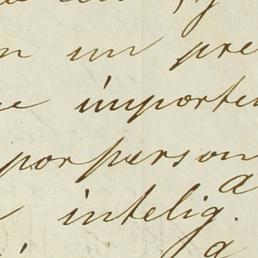 n un pre
e importe
por person
intelig.ª